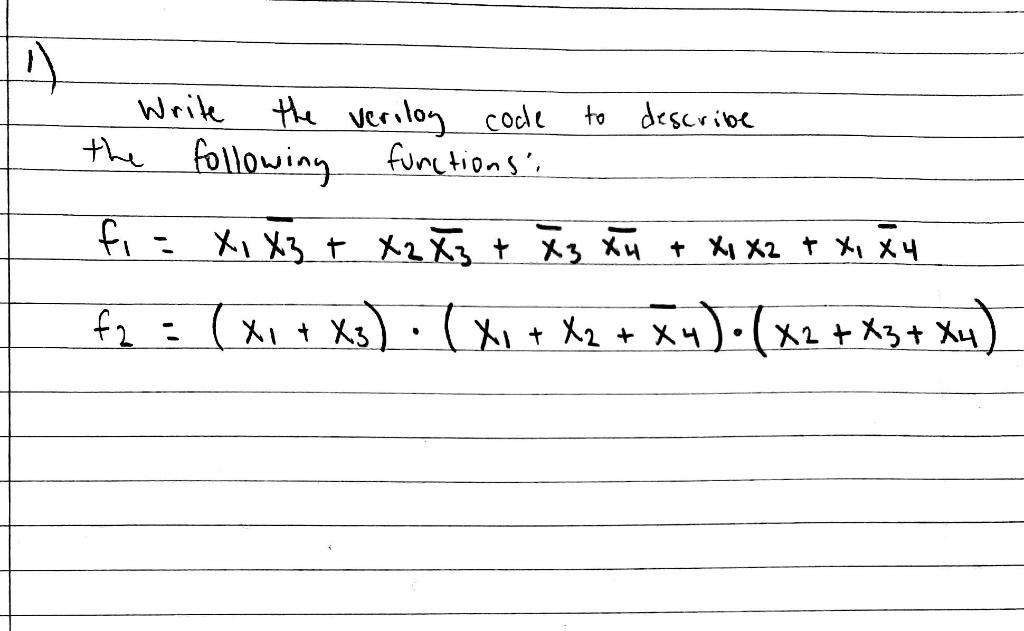 1)
Write the verilog code to describe
the following functions:
f₁ = x₁ x̅₃ + x₂ x̅₃ + x̅₃ x̅₄ + x₁ x₂ + x₁ x̅₄
f₂ = (x₁ + x₃) · (x₁ + x₂ + x̅₄) · (x₂ + x₃ + x₄)